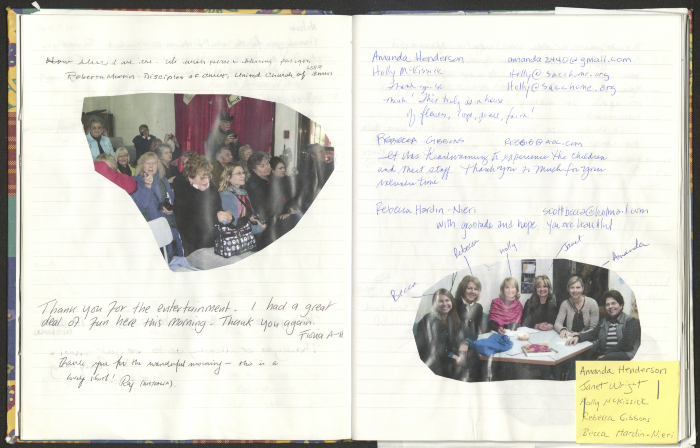 Rebecca Nunn - Disciples of Christ, United Church of Christ
Thank you for the entertainment. I had a great
deal of fun here this morning. Thank you again.
Fiona A-H
Thank you for the wonderful morning - this is a
lovely
Amanda Henderson amanda2440@gmail.com
Holly McKissick Holly@sacchome.org
Thank you so Holly@sacchome.org
much! This truly is a house
of flowers, hope, peace, faith!
Rebecca Gibbons
It was heartwarming to experience the children
and their staff. Thank you so much for your
valuable time
Rebecca Hardin-Nieri
with gratitude and hope you are beautiful
Becca
Rebecca
Holly
Janet
Amanda
Amanda Henderson
Janet Wright
Holly McKissick
Rebecca Gibbons
Becca Hardin-Nieri